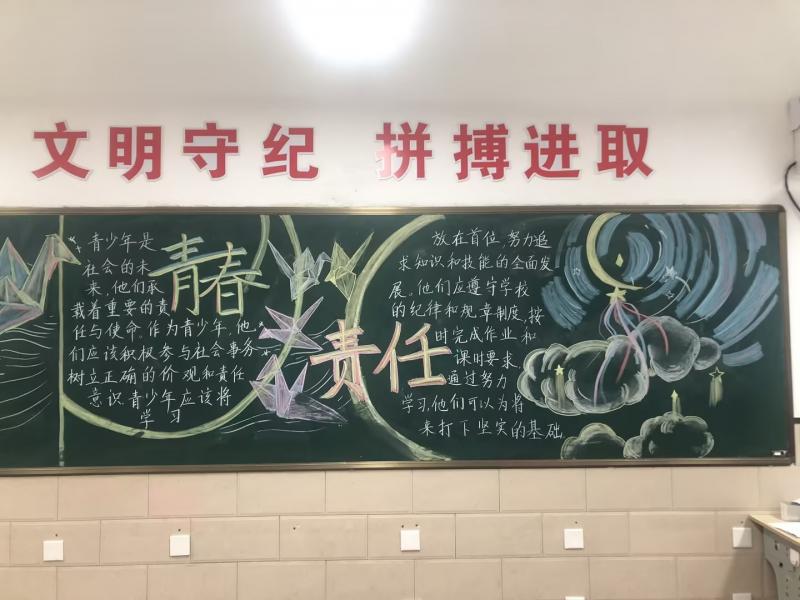 文明守纪 拼搏进取
青春
责任
青少年是
社会的未
来，他们承
载着重要的责
任与使命。作为青少年，他
们应该积极参与社会事务
树立正确的价观和责任
意识。青少年应该将
学习
放在首位，努力追
求知识和技能的全面发
展。他们应遵守学校
的纪律和规章制度，按
时完成作业和
课时要求，
通过努力
学习，他们可以为将
来打下坚实的基础。